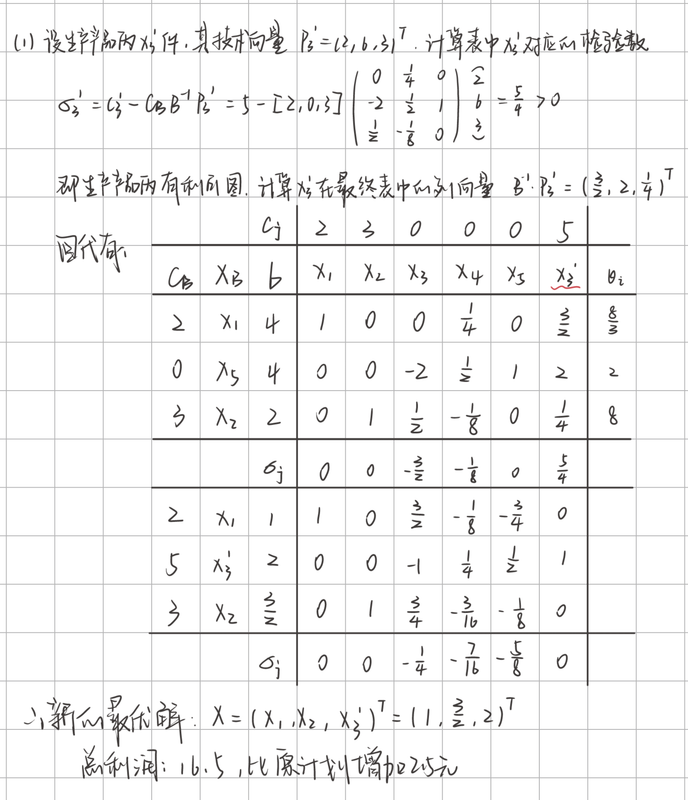 (1) 设生产产品丙 x₃' 件, 其技术向量 P₃' = (2, 6, 3)ᵀ. 计算表中 x₃' 对应的检验数
σ₃' = C₃' - C_B B⁻¹ P₃' = 5 - [2, 0, 3] (0 1/4 0; -2 1/2 1; 1/2 -1/8 0) (2 6 3) = 5/4 > 0
即生产产品丙有利可图. 计算 x₃' 在最终表中的列向量 B⁻¹·P₃' = (3/2, 2, 1/4)ᵀ
回代有:
Cj 2 3 0 0 0 5
C_B X_B b x₁ x₂ x₃ x₄ x₅ x₃' θi
2 x₁ 4 1 0 0 1/4 0 3/2 8/3
0 x₅ 4 0 0 -2 1/2 1 2 2
3 x₂ 2 0 1 1/2 -1/8 0 1/4 8
σj 0 0 -3/2 -1/8 0 5/4
2 x₁ 1 1 0 3/2 -1/8 -3/4 0
5 x₃' 2 0 0 -1 1/4 1/2 1
3 x₂ 3/2 0 1 3/4 -3/16 -1/8 0
σj 0 0 -1/4 -7/16 -5/8 0
∴ 新的最优解: X = (x₁, x₂, x₃')ᵀ = (1, 3/2, 2)ᵀ
总利润: 16.5, 比原计划增加2.5元